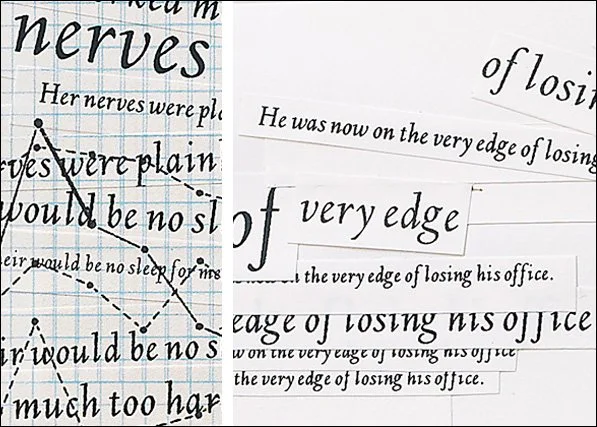 nerves
Her nerves were
were plain
would be no
would be no sleep for
would be no s
much too
of
He was now on the very edge of losing
of very edge
the very edge of losing his office.
edge of losing his office
on the very edge of losing his office
the very edge of losing his office.